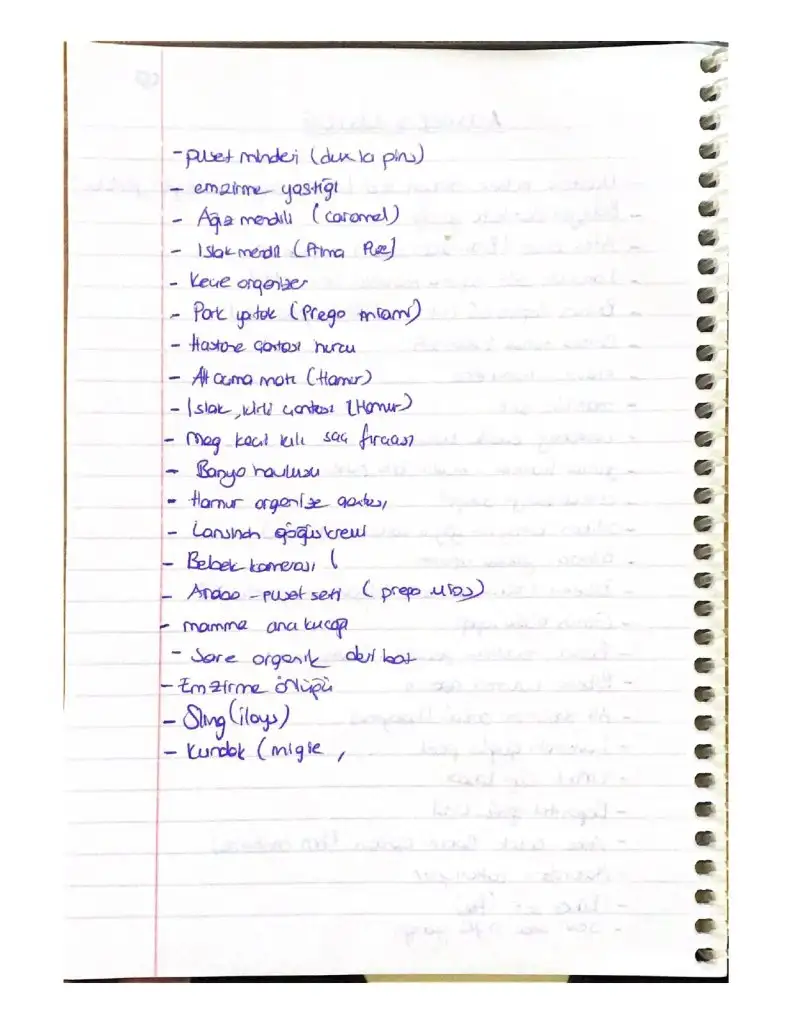 - puset minderi (dux la pins)
- emzirme yastığı
- Ağız mendili (caramel)
- Islak mendil (Prima Pure)
- Keçe organizer
- Park yatak (Prego miami)
- Hastane çantası hurcu
- Alt açma matı (Hamur)
- Islak, kirli çantası (Hamur)
- mag keçi kılı saç fırçası
- Banyo havlusu
- Hamur organize çantası
- Lansinoh göğüs kremi
- Bebek kamerası (
- Araba - puset seti (prego
- mamma ana kucağı
- organik
- Emzirme önlüğü
- Sling (
- Kundak (migle ,